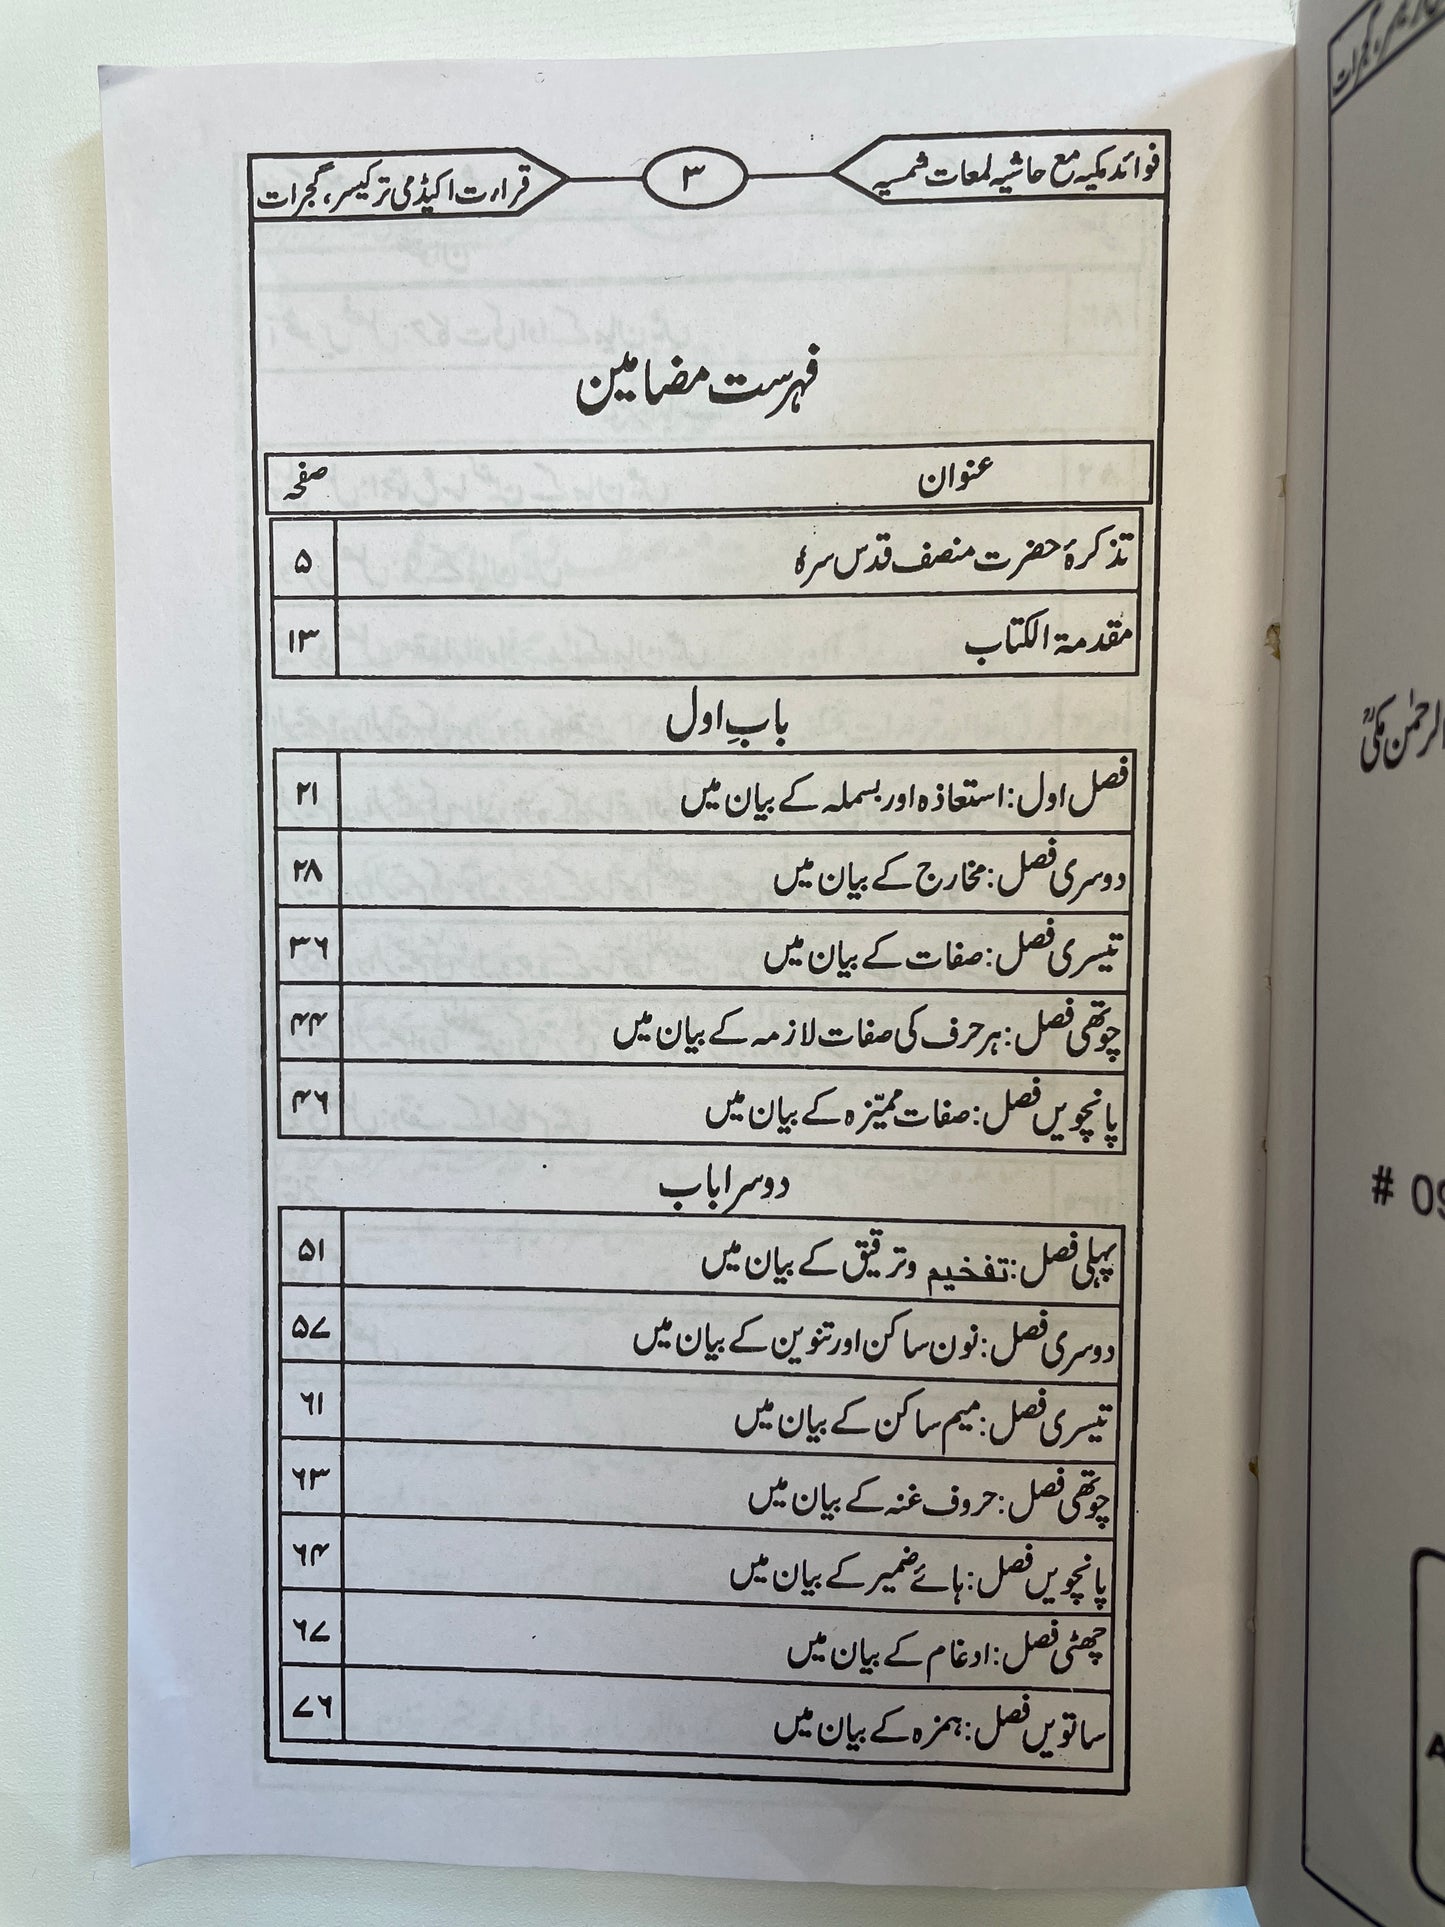 فوائد مکیہ مع حاشیہ لمعات شمسیہ
۳
قراءت اکیڈمی ترکیسر، گجرات
فہرست مضامین
عنوان صفحہ
تذکرۂ حضرت منصف قدس سرہٗ ۵
مقدمۃ الکتاب ۱۳
بابِ اول
فصل اول: استعاذہ اور بسملہ کے بیان میں ۲۱
دوسری فصل: مخارج کے بیان میں ۲۸
تیسری فصل: صفات کے بیان میں ۳۶
چوتھی فصل: ہر حرف کی صفات لازمہ کے بیان میں ۴۴
پانچویں فصل: صفات ممیّزہ کے بیان میں ۴۶
دوسرا باب
پہلی فصل: تفخیم وترقیق کے بیان میں ۵۱
دوسری فصل: نون ساکن اور تنوین کے بیان میں ۵۷
تیسری فصل: میم ساکن کے بیان میں ۶۱
چوتھی فصل: حروف غنہ کے بیان میں ۶۳
پانچویں فصل: ہائے ضمیر کے بیان میں ۶۴
چھٹی فصل: ادغام کے بیان میں ۶۷
ساتویں فصل: ہمزہ کے بیان میں ۷۶
گجرات
الرحمٰن مکیؒ
# 09
A